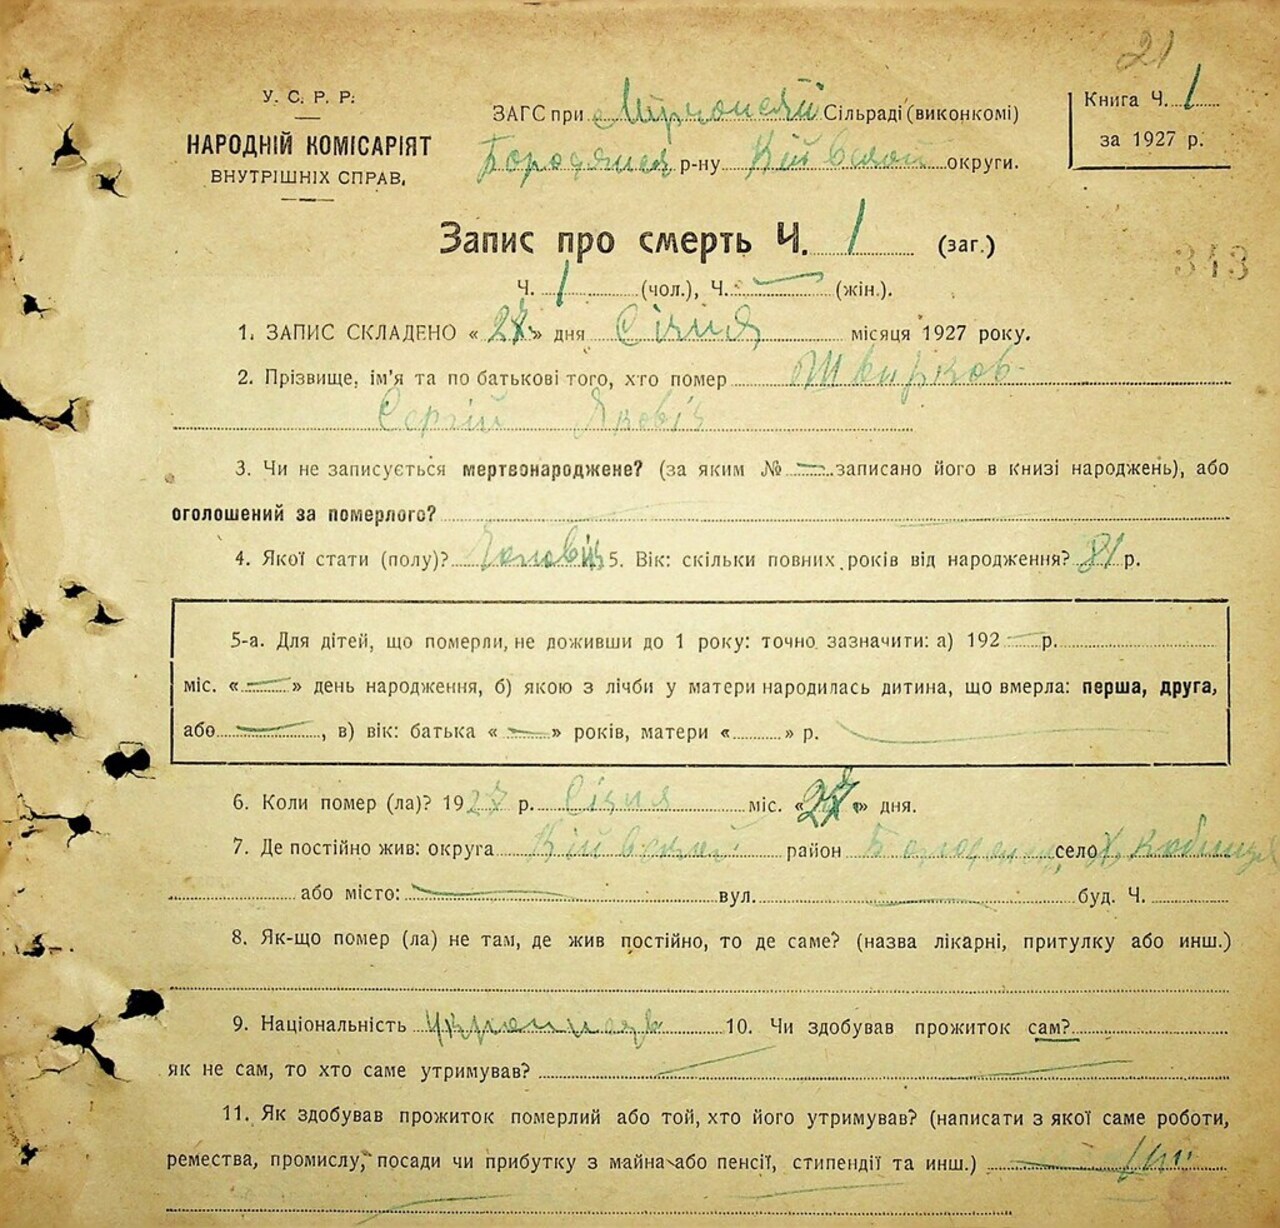 21
У. С. Р. Р.
НАРОДНІЙ КОМІСАРІЯТ
ВНУТРІШНІХ СПРАВ.
ЗАГС при Сільраді (виконкомі)
р-ну округи.
Книга Ч. 1
за 1927 р.
Запис про смерть Ч. 1 (заг.)
343
Ч. 1 (чол.), Ч. — (жін.).
1. ЗАПИС СКЛАДЕНО « » дня Січня місяця 1927 року.
2. Прізвище, ім'я та по батькові того, хто помер
Сергій Яковіч
3. Чи не записується мертвонароджене? (за яким № — записано його в книзі народжень), або
оголошений за померлого?
4. Якої стати (полу)? 5. Вік: скільки повних років від народження? 81 р.
5-а. Для дітей, що померли, не доживши до 1 року: точно зазначити: а) 192 — р.
міс. « — » день народження, б) якою з лічби у матери народилась дитина, що вмерла: перша, друга,
або — , в) вік: батька « — » років, матери « » р.
6. Коли помер (ла)? 1927 р. Січня міс. « » дня.
7. Де постійно жив: округа район село
або місто: — вул. — буд. Ч.
8. Як-що помер (ла) не там, де жив постійно, то де саме? (назва лікарні, притулку або инш.)
9. Національність 10. Чи здобував прожиток сам?
як не сам, то хто саме утримував?
11. Як здобував прожиток померлий або той, хто його утримував? (написати з якої саме роботи,
ремества, промислу, посади чи прибутку з майна або пенсії, стипендії та инш.)